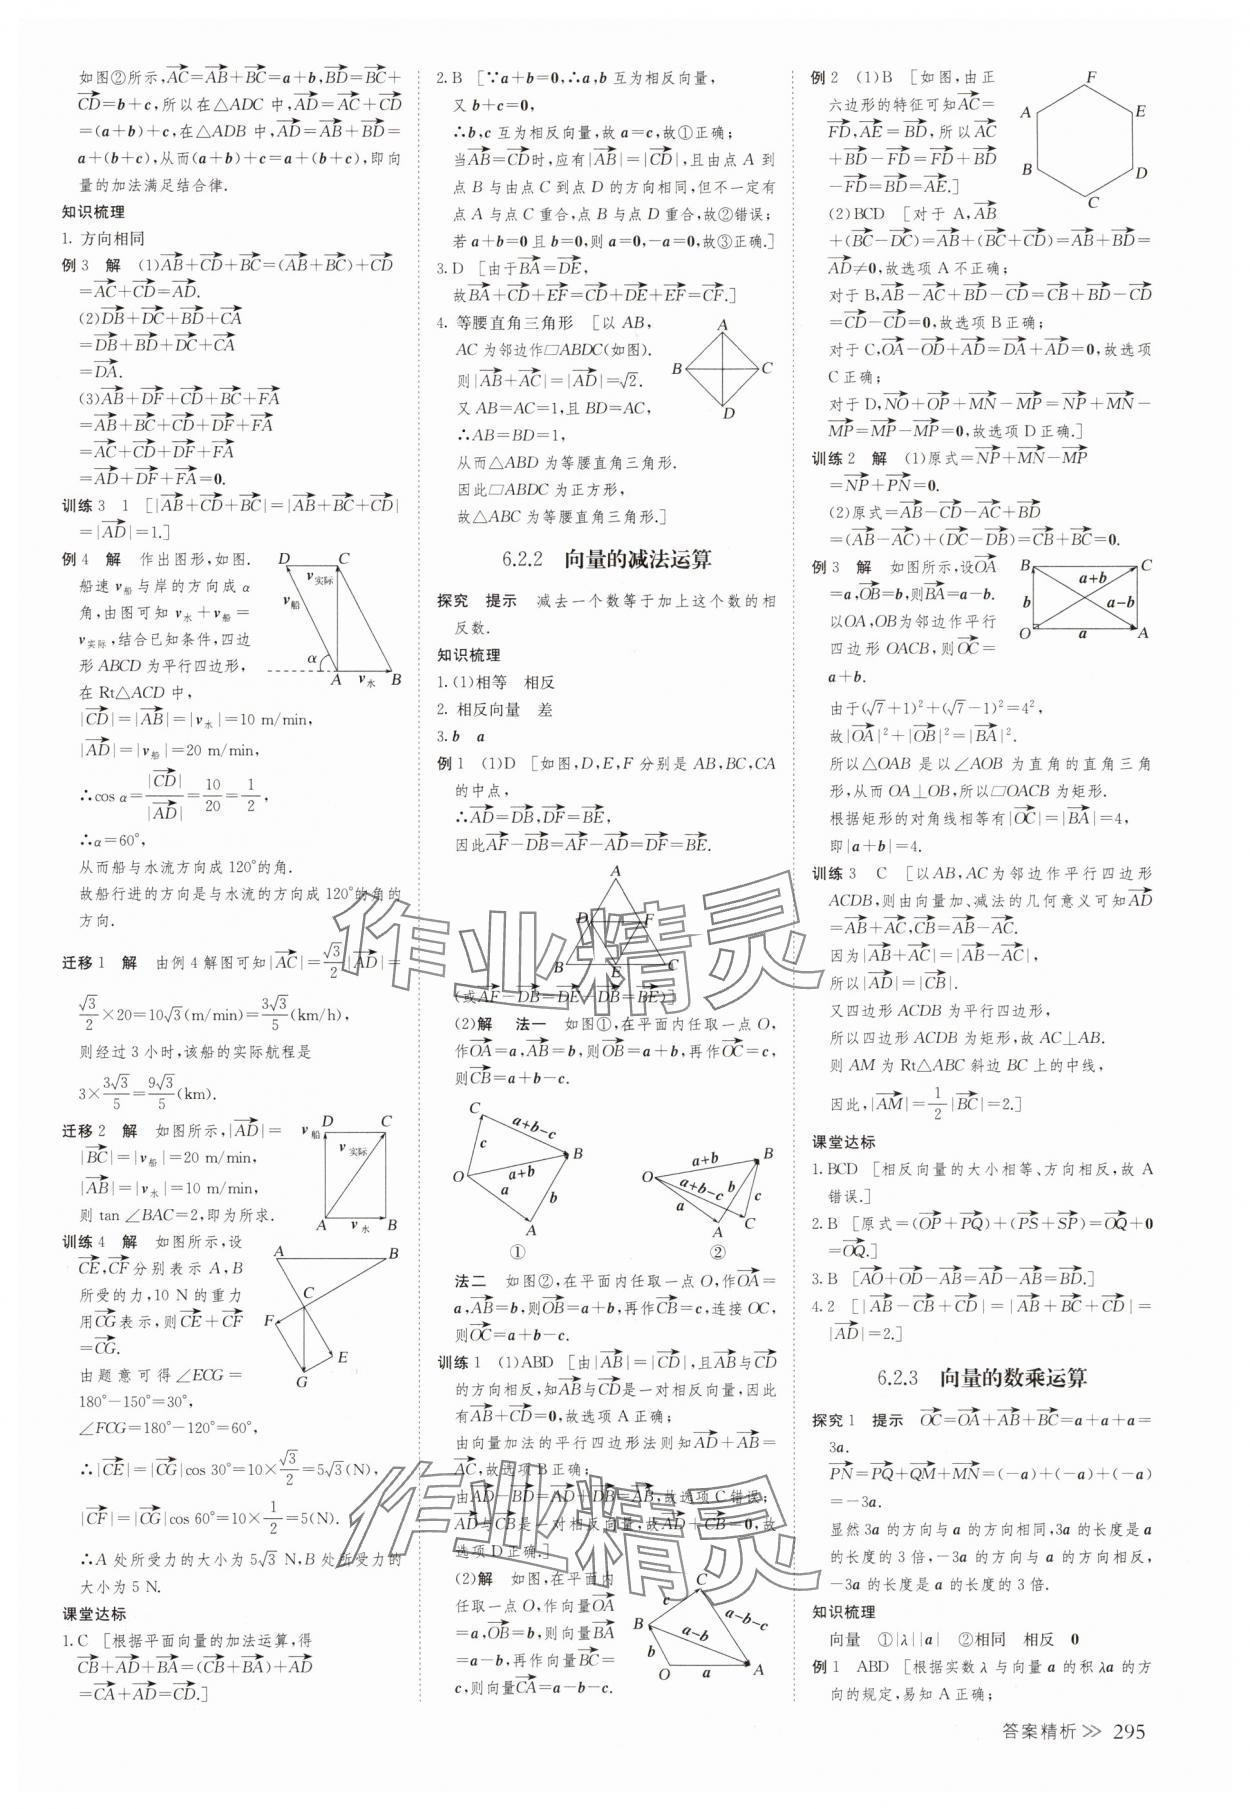 如图②所示,AC=AB+BC=a+b,BD=BC+
CD=b+c,所以在△ADC 中,AD=AC+CD
=(a+b)+c,在△ADB 中,AD=AB+BD=
a+(b+c),从而(a+b)+c=a+(b+c),即向
量的加法满足结合律.
知识梳理
1. 方向相同
例 3 解 (1)AB+CD+BC=(AB+BC)+CD
=AC+CD=AD.
(2)DB+DC+BD+CA
=DB+BD+DC+CA
=DA.
(3)AB+DF+CD+BC+FA
=AB+BC+CD+DF+FA
=AC+CD+DF+FA
=AD+DF+FA=0.
训练 3 1 [|AB+CD+BC|=|AB+BC+CD|
=|AD|=1.]
例 4 解 作出图形,如图.
船速 v船 与岸的方向成 α
角,由图可知 v水+v船=
v实际,结合已知条件,四边
形 ABCD 为平行四边形,
在 Rt△ACD 中,
|CD|=|AB|=|v水|=10 m/min,
|AD|=|v船|=20 m/min,
∴cos α=|CD|/|AD|=10/20=1/2,
∴α=60°,
从而船与水流方向成 120°的角.
故船行进的方向是与水流的方向成 120°的角的
方向.
迁移 1 解 由例 4 解图可知|AC|=√3/2|AD|=
√3/2×20=10√3(m/min)=3√3/5(km/h),
则经过 3 小时,该船的实际航程是
3×3√3/5=9√3/5(km).
迁移 2 解 如图所示,|AD|=
|BC|=|v船|=20 m/min,
|AB|=|v水|=10 m/min,
则 tan ∠BAC=2,即为所求.
训练 4 解 如图所示,设
CE,CF分别表示 A,B
所受的力,10 N 的重力
用CG表示,则CE+CF
=CG.
由题意可得∠ECG=
180°-150°=30°,
∠FCG=180°-120°=60°,
∴|CE|=|CG|cos 30°=10×√3/2=5√3(N),
|CF|=|CG|cos 60°=10×1/2=5(N).
∴A 处所受力的大小为 5√3 N,B 处所受力的
大小为 5 N.
课堂达标
1. C [根据平面向量的加法运算,得
CB+AD+BA=(CB+BA)+AD
=CA+AD=CD.]
2. B [∵a+b=0,∴a,b 互为相反向量,
又 b+c=0,
∴b,c 互为相反向量,故 a=c,故①正确;
当AB=CD时,应有|AB|=|CD|,且由点 A 到
点 B 与由点 C 到点 D 的方向相同,但不一定有
点 A 与点 C 重合,点 B 与点 D 重合,故②错误;
若 a+b=0 且 b=0,则 a=0,-a=0,故③正确.]
3. D [由于BA=DE,
故BA+CD+EF=CD+DE+EF=CF.]
4. 等腰直角三角形 [以 AB,
AC 为邻边作□ABDC(如图).
则|AB+AC|=|AD|=√2.
又 AB=AC=1,且 BD=AC,
∴AB=BD=1,
从而△ABD 为等腰直角三角形.
因此□ABDC 为正方形,
故△ABC 为等腰直角三角形.]
6.2.2 向量的减法运算
探究 提示 减去一个数等于加上这个数的相
反数.
知识梳理
1. (1)相等 相反
2. 相反向量 差
3. b a
例 1 (1)D [如图,D,E,F 分别是 AB,BC,CA
的中点,
∴AD=DB,DF=BE,
因此AF-DB=AF-AD=DF=BE.
(或AF-DB=DE-DB=BE)]
(2)解 法一 如图①,在平面内任取一点 O,
作OA=a,AB=b,则OB=a+b,再作OC=c,
则CB=a+b-c.
① ②
法二 如图②,在平面内任取一点 O,作OA=
a,AB=b,则OB=a+b,再作CB=c,连接 OC,
则OC=a+b-c.
训练 1 (1)ABD [由|AB|=|CD|,且AB与CD
的方向相反,知AB与CD是一对相反向量,因此
有AB+CD=0,故选项 A 正确;
由向量加法的平行四边形法则知AD+AB=
AC,故选项 B 正确;
由AD-BD=AD+DB=AB,故选项 C 错误;
AD与CB是一对相反向量,故AD+CB=0,故
选项 D 正确.]
(2)解 如图,在平面内
任取一点 O,作向量OA
=a,OB=b,则向量BA
=a-b,再作向量BC=
c,则向量CA=a-b-c.
例 2 (1)B [如图,由正
六边形的特征可知AC=
FD,AE=BD,所以AC
+BD-FD=FD+BD
-FD=BD=AE.]
(2)BCD [对于 A,AB
+(BC-DC)=AB+(BC+CD)=AB+BD=
AD≠0,故选项 A 不正确;
对于 B,AB-AC+BD-CD=CB+BD-CD
=CD-CD=0,故选项 B 正确;
对于 C,OA-OD+AD=DA+AD=0,故选项
C 正确;
对于 D,NO+OP+MN-MP=NP+MN-
MP=MP-MP=0,故选项 D 正确.]
训练 2 解 (1)原式=NP+MN-MP
=NP+PN=0.
(2)原式=AB-CD-AC+BD
=(AB-AC)+(DC+BD)=CB+BC=0.
例 3 解 如图所示,设OA
=a,OB=b,则BA=a-b.
以OA,OB为邻边作平行
四边形 OACB,则OC=
a+b.
由于(√7+1)²+(√7-1)²=4²,
故|OA|²+|OB|²=|BA|².
所以△OAB 是以∠AOB 为直角的直角三角
形,从而 OA⊥OB,所以□OACB 为矩形.
根据矩形的对角线相等有|OC|=|BA|=4,
即|a+b|=4.
训练 3 C [以 AB,AC 为邻边作平行四边形
ACDB,则由向量加、减法的几何意义可知AD
=AB+AC,CB=AB-AC.
因为|AB+AC|=|AB-AC|,
所以|AD|=|CB|.
又四边形 ACDB 为平行四边形,
所以四边形 ACDB 为矩形,故 AC⊥AB.
则 AM 为 Rt△ABC 斜边 BC 上的中线,
因此,|AM|=1/2|BC|=2.]
课堂达标
1. BCD [相反向量的大小相等、方向相反,故 A
错误.]
2. B [原式=(OP+PQ)+(PS+SP)=OQ+0
=OQ.]
3. B [AO+OD-AB=AD-AB=BD.]
4. 2 [|AB-CB+CD|=|AB+BC+CD|=
|AD|=2.]
6.2.3 向量的数乘运算
探究 1 提示 OC=OA+AB+BC=a+a+a=
3a.
PN=PQ+QM+MN=(-a)+(-a)+(-a)
=-3a.
显然 3a 的方向与 a 的方向相同,3a 的长度是 a
的长度的 3 倍,-3a 的方向与 a 的方向相反,
-3a 的长度是 a 的长度的 3 倍.
知识梳理
向量 ①|λ||a| ②相同 相反 0
例 1 ABD [根据实数 λ 与向量 a 的积 λa 的方
向的规定,易知 A 正确;
答案精析 >> 295
作业精灵
作业精灵